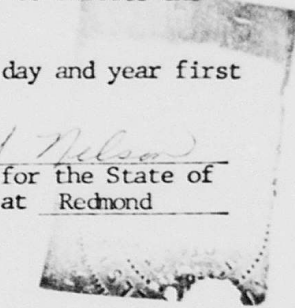 day and year first
Nelson
for the State of
at Redmond